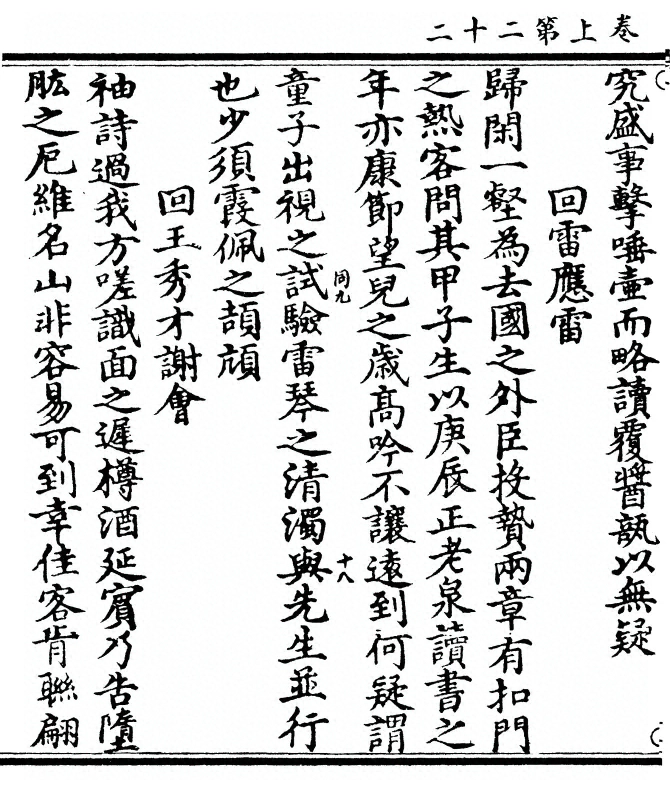 卷上第二十二
究盛事擊唾壷而略讀覆醬瓿以無疑
回雷應雷
歸閑一壑為去國之外臣投贄兩章有扣門
之熱客問其甲子生以庚辰正老泉讀書之
年亦康節望兒之歳髙吟不讓逺到何疑謂
童子出視之試驗雷琴之清濁與先生並行
同九
十八
也少須霞佩之頡頏
回王秀才謝會
袖詩過我方嗟識面之遲樽酒延賓乃告墮
肱之戹維名山非容易可到幸佳客肯聮翩